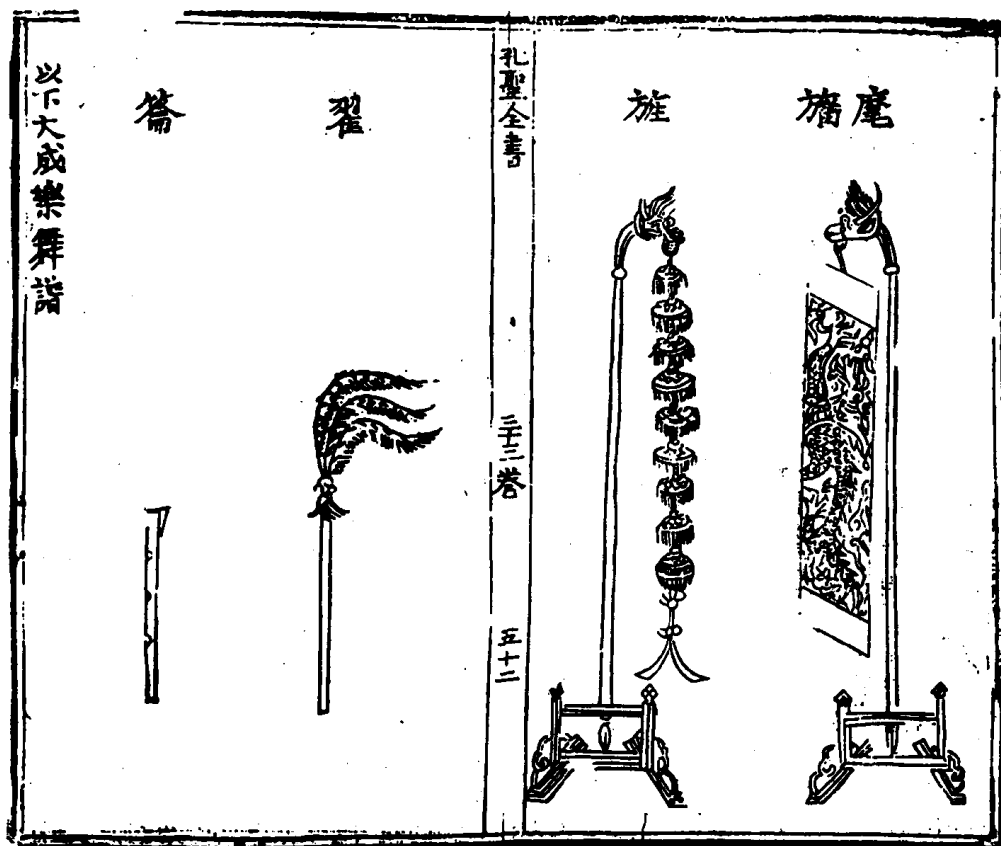 麾旛
旌
孔聖全書
三十三卷
五十二
翟
籥
以下大成樂舞譜